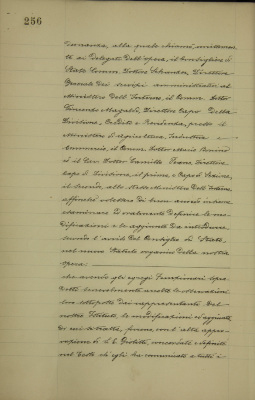 256
domanda, alla quale chiamò unitamente
ai Delegati dell'opera, il Consigliere di
Stato Comm. Dottor Schanzer, Direttore
Generale dei servizi amministrativi al
Ministero dell'Interno, il Comm. Dottor
Vincenzo Magaldi, Direttore Capo della
Divisione, Credito e Previdenza, presso il
Ministero di Agricoltura, Industria e
Commercio, il Comm. Dottor Mario
ed il Cav. Dottor Camillo Peano Direttore
capo di Divisione, il primo, e Capo di Sezione,
il secondo, allo stesso Ministero dell'Interno,
affinchè volessero di buon animo insieme
esaminare ed eventualmente definire le mo-
dificazioni e le aggiunte da introdurre
secondo l'avviso del Consiglio di Stato,
nel nuovo Statuto organico della nostra
opera.
che avendo gli egregi Funzionari
accolte le osservazioni
loro esposte dai rappresentanti del
nostro Istituto, le modificazioni ed aggiunte
di cui si tratta, furono, con l'alta appro-
vazione di S. E. Giolitti, concordate e definite
nel testo che egli ha comunicato a tutti i